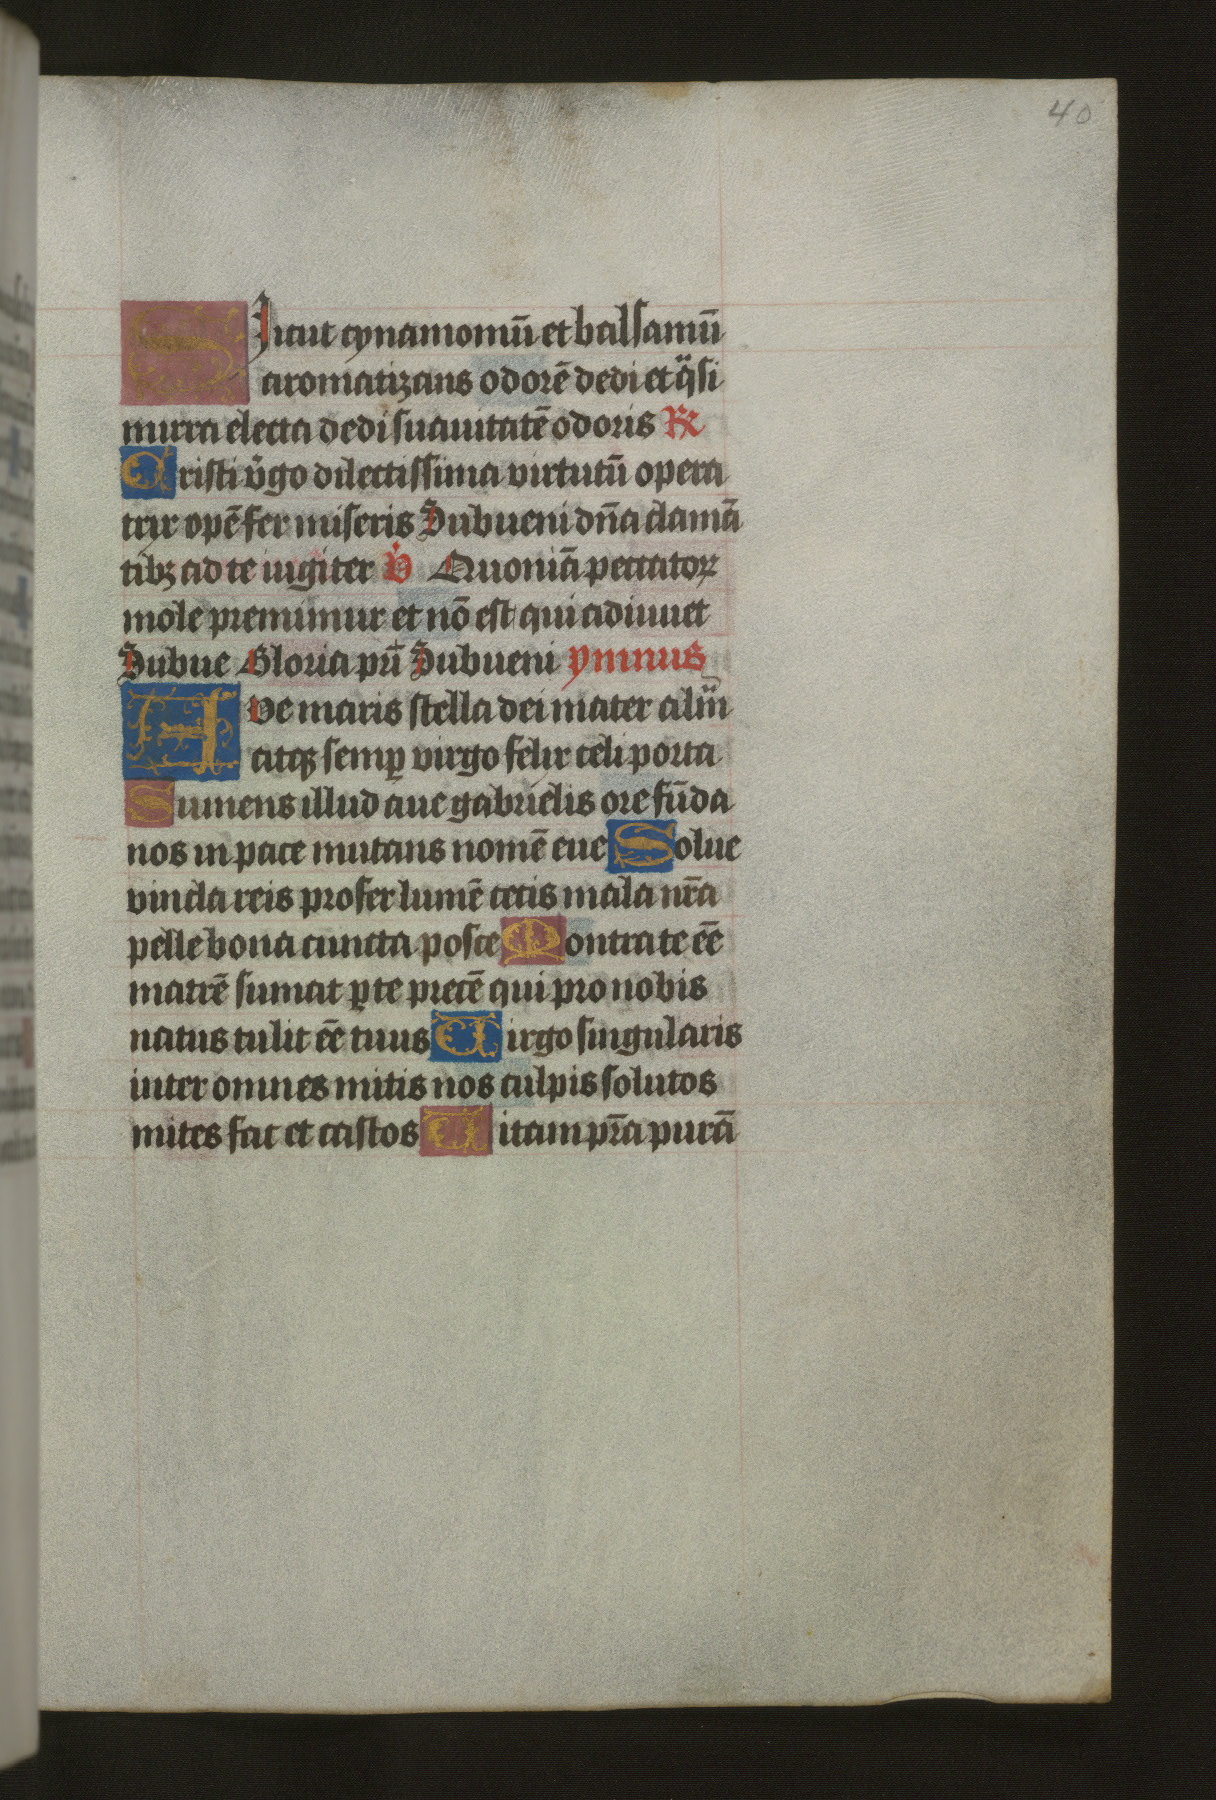 40
SIcut cynamomū et balsamū
aromatizans odorē dedi et q̈si
mirra electa dedi suauitatē odoris R
Cristi v̄go dilectissima virtutū opera
trix opē fer miseris Subueni dn̄a clamā
tibꝫ ad te iugiter V̄ Quoniā peccatoꝝ
mole premimur et nō est qui adiuuet
Subue Gloria pr̄i Subueni ymnus
AVe maris stella dei mater alma
atqꝫ semꝑ virgo felix celi porta
Sumens illud aue gabrielis ore fūda
nos in pace mutans nomē eue Solue
vincla reis profer lumē cecis mala nr̄a
pelle bona cuncta posce Montra te eē
matrē sumat ꝑ te precē qui pro nobis
natus tulit eē tuus Uirgo singularis
inter omnes mitis nos culpis solutos
mites fac et castos Uitam pr̄a purā